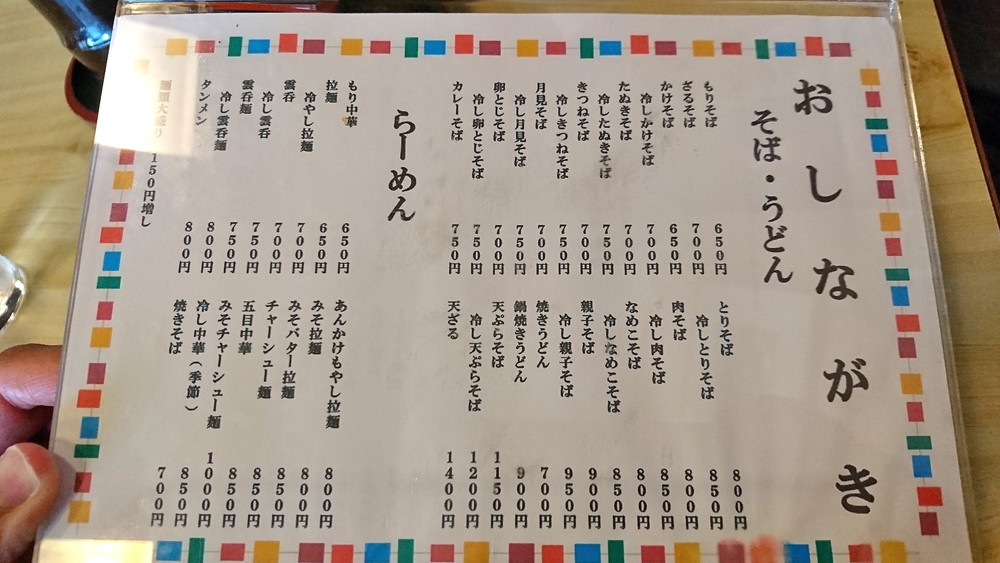 おしながき
そば・うどん
もりそば 650円
ざるそば 700円
かけそば 650円
冷しかけそば 700円
たぬきそば 700円
冷したぬきそば 750円
きつねそば 700円
冷しきつねそば 750円
月見そば 700円
冷し月見そば 750円
卵とじそば 700円
冷し卵とじそば 750円
カレーそば 750円
とりそば 800円
冷しとりそば 850円
肉そば 800円
冷し肉そば 850円
なめこそば 800円
冷しなめこそば 850円
親子そば 900円
冷し親子そば 950円
焼きうどん 700円
鍋焼きうどん 900円
天ぷらそば 1150円
冷し天ぷらそば 1200円
天ざる 1400円
らーめん
もり中華 650円
拉麺 650円
冷やし拉麺 700円
雲呑 700円
冷し雲呑 750円
雲呑麺 750円
冷し雲呑麺 800円
タンメン 800円
あんかけもやし拉麺 800円
みそ拉麺 800円
みそバター拉麺 850円
チャーシュー麺 850円
五目中華 850円
みそチャーシュー麺 1000円
冷し中華（季節） 850円
焼きそば 700円
麺類大盛り 150円増し